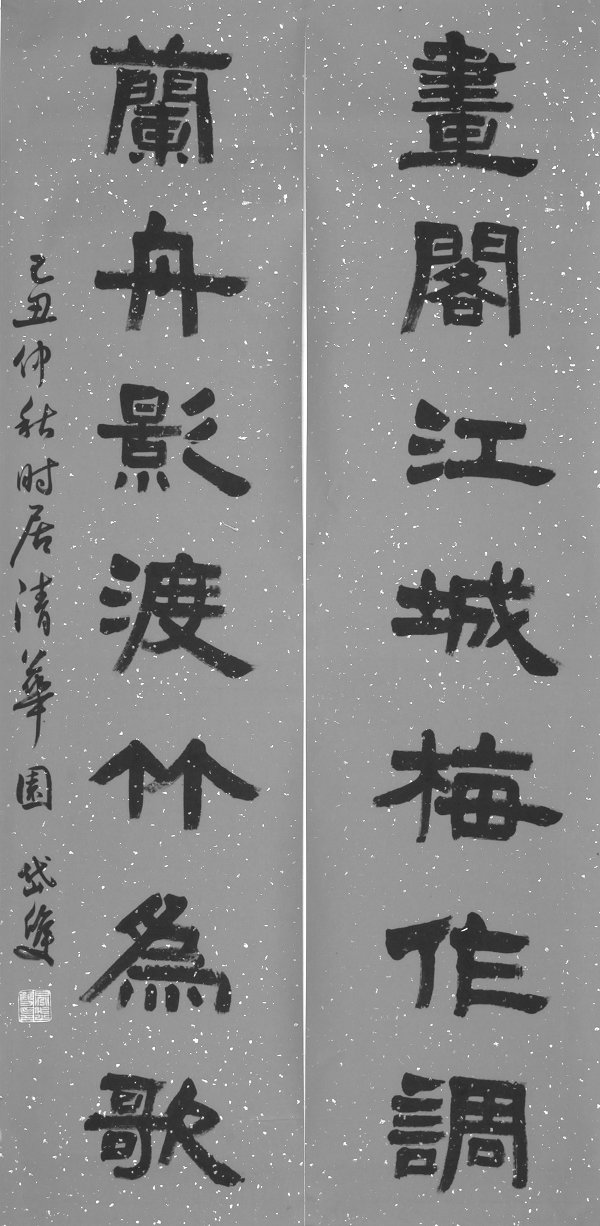 畫閣江城梅作調
蘭舟影渡竹為歌
己丑仲秋时居清華園